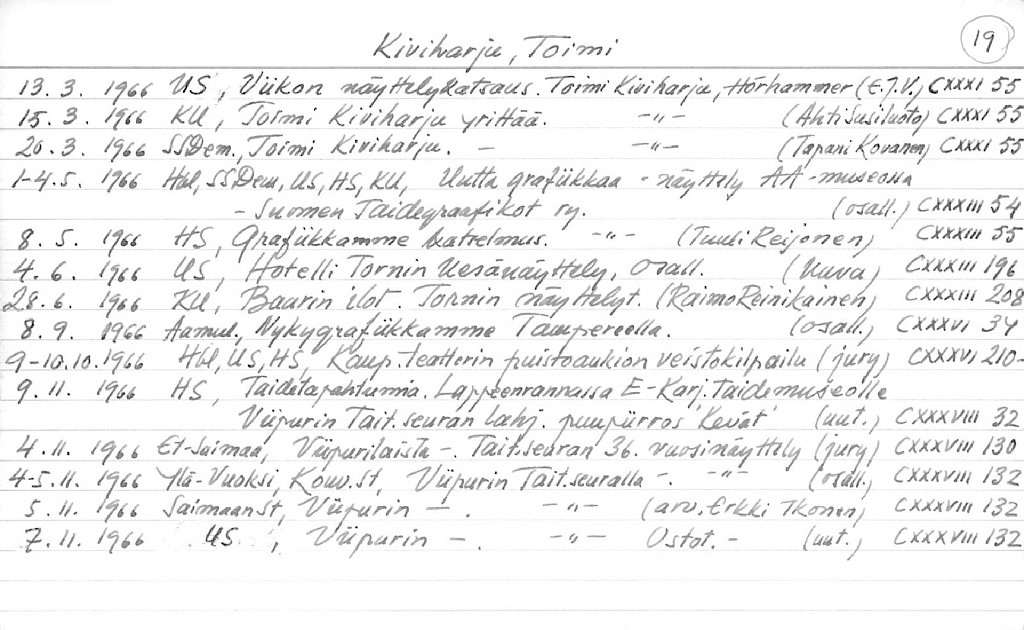 19
Kiviharju, Toimi
13.3. 1966 US, Viikon näyttelykatsaus. Toimi Kiviharju, Hörhammer (E.J.V.) CXXXI 55
15.3. 1966 KU, Toimi Kiviharju yrittää. -"- (Ahti Susiluoto) CXXXI 55
20.3. 1966 SSDem., Toimi Kiviharju. - -"- (Tapani Kovanen) CXXXI 55
1-4.5. 1966 Hbl, SSDem, US, HS, KU, Uutta grafiikkaa - näyttely AA-museossa
- Suomen Taidegraafikot ry. (osall.) CXXXIII 54
8.5. 1966 HS, Grafiikkamme katselmus. -"- (Tuuli Reijonen) CXXXIII 55
4.6. 1966 US, Hotelli Tornin kesänäyttely, osall. (kuva) CXXXIII 196
28.6. 1966 KU, Baarin ilot. Tornin näyttelyt. (Raimo Reinikainen) CXXXIII 208
8.9. 1966 Aamul., Nykygrafiikkamme Tampereella. (osall.) CXXXVI 34
9-10.10.1966 Hbl, US, HS, Kaup.teatterin puistoaukion veistokilpailu (jury) CXXXVI 210-
9.11. 1966 HS, Taidetapahtumia. Lappeenrannassa E-Karj.taidemuseolle
Viipurin Tait.seuran lahj. puupiirros 'Kevät' (uut.) CXXXVIII 32
4.11. 1966 Et-Saimaa, Viipurilaista -. Tait.seuran 36. vuosinäyttely (jury) CXXXVIII 130
4-5.11. 1966 Ylä-Vuoksi, Kouv.St, Viipurin Tait.seuralla -. -"- (osall.) CXXXVIII 132
5.11. 1966 SaimaanSt, Viipurin -. -"- (arv. Erkki Ikonen) CXXXVIII 132
7.11. 1966 US, Viipurin -. -"- Ostot. - (uut.) CXXXVIII 132